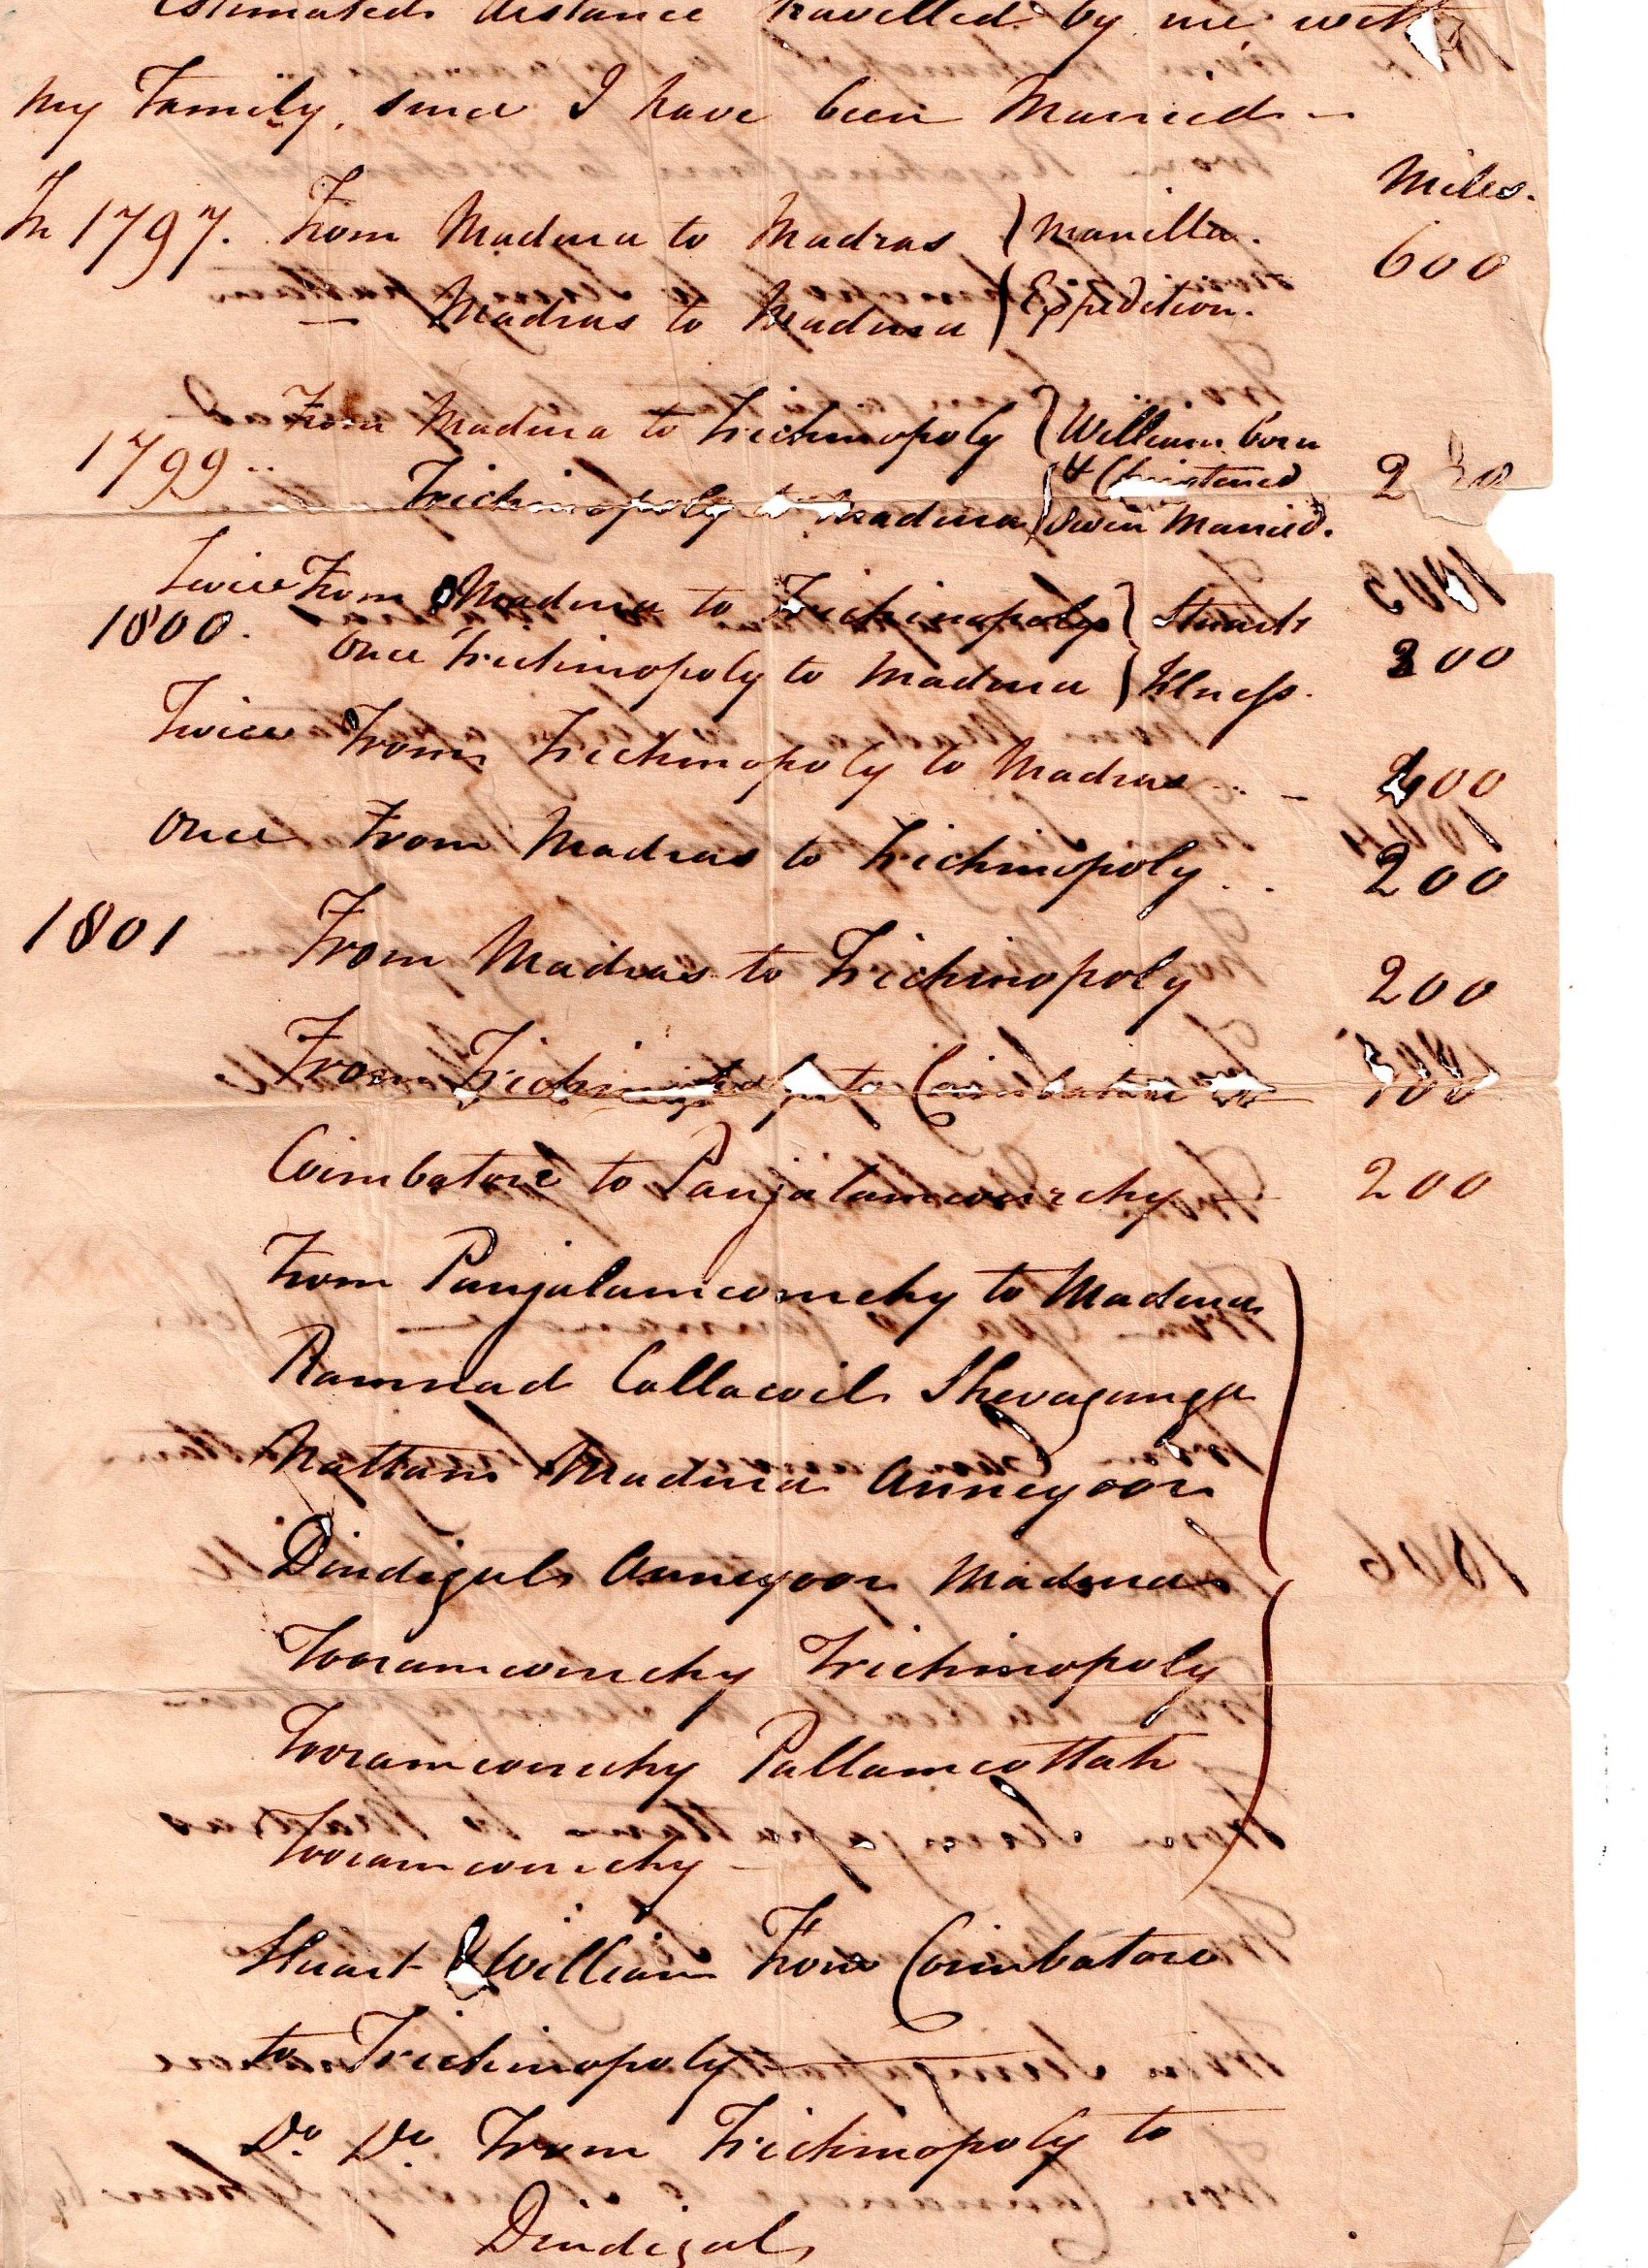 Estimated distance travelled by me with
my Family, since I have been Married –
Miles.
In 1797. From Madura to Madras } Manilla. 600
— Madras to Madura } Expedition.
1799 .. From Madura to Trichinopoly } William born
Trichinopoly to Madura } & Christened
Swen Married.
Twice From Madura to Trichinopoly } Stuarts
1800. Once Trichinopoly to Madura } Illness. 300
Twice From Trichinopoly to Madras .. – 400
Once From Madras to Trichinopoly . . 200
1801 From Madras to Trichinopoly 200
From Trichinopoly to Coimbatore 100
Coimbatore to Panjalamcourchy – 200
From Panjalamcourchy to Madura
Ramnad Callacoil Shevagunga
Nattam Madura Anneyoor
Dindigul Anneyoor Madura
Tooramcourchy Trichinopoly
Tooramcourchy Pallamcottah
Tooramcourchy –
Stuart & William From Coimbatore
to Trichinopoly
Do. Do. From Trichinopoly to
Dindigul